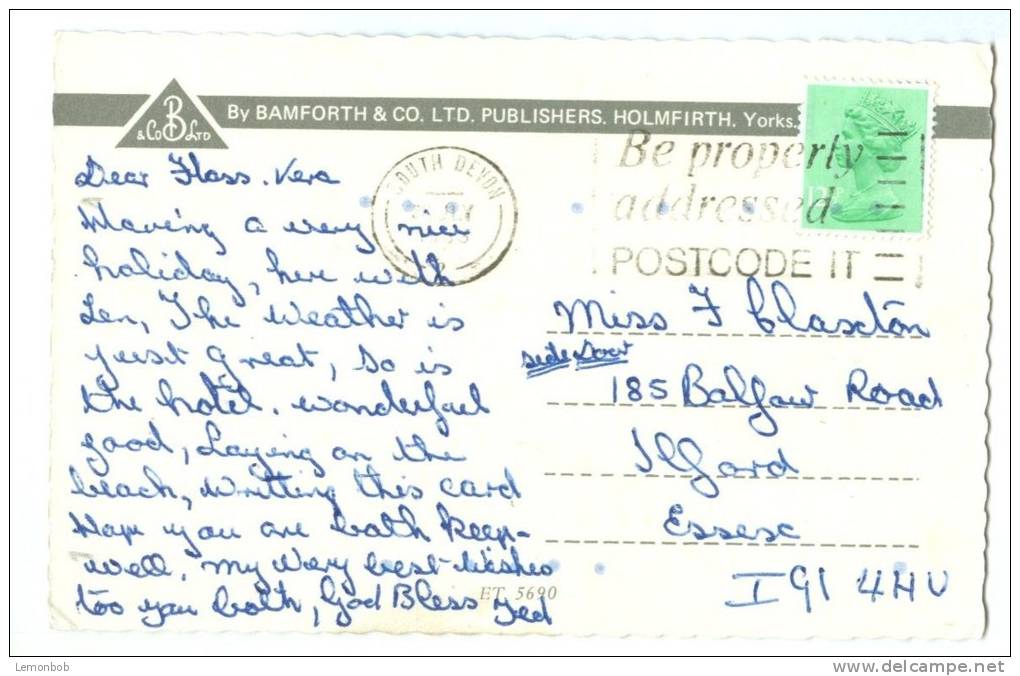 By BAMFORTH & CO. LTD. PUBLISHERS. HOLMFIRTH. Yorks.
B
& Co LTD
Be properly
addressed
POSTCODE IT
SOUTH DEVON
Dear Floss. Vera
Having a very nice
holiday, here with
Len, The Weather is
just great, so is
the hotel. wonderful
good, Laying on the
beach, writting this card
Hope you are both keep-
well, my Very best wishes
too you both, God Bless Ted
Miss F Claxton
side door
185 Balfour Road
Ilford
Essex
IG1 4HU
ET. 5690
Lemonbob
www.delcampe.net